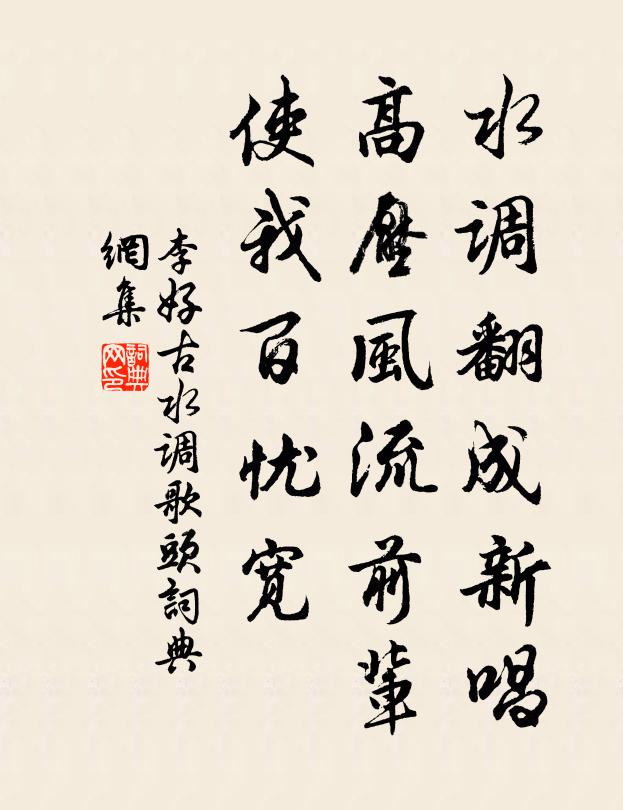 水调翻成新唱
高壓風流前輩
使我百忧宽
李好古水调歌頭詞典
網集
詞典
网印